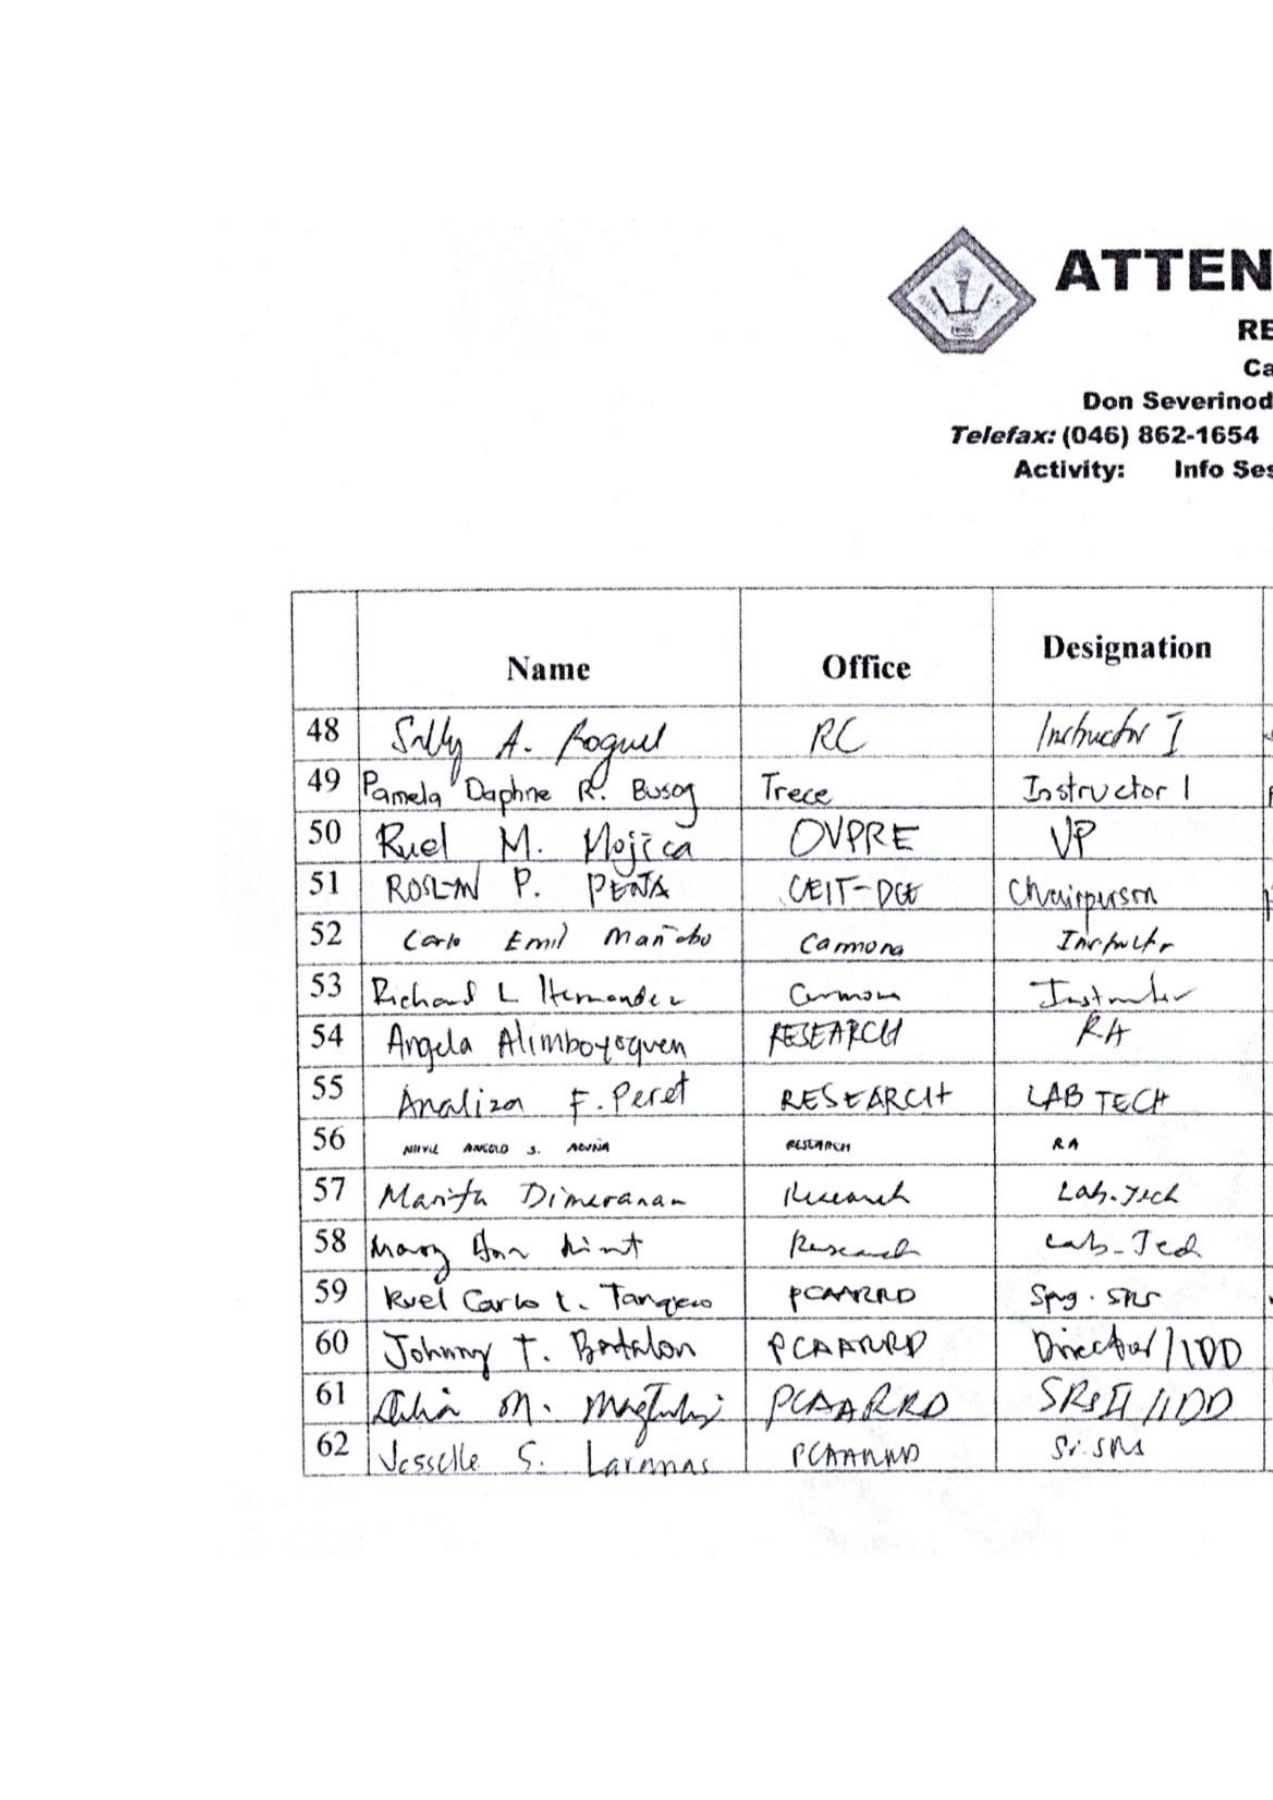 ATTEN
RE
Ca
Don Severinod
Telefax: (046) 862-1654
Activity: Info Ses
Name Office Designation
48 Sally A. Roguel RC Instructor I
49 Pamela Daphne R. Busog Trece Instructor 1
50 Ruel M. Mojica OVPRE VP
51 ROSLYN P. PEÑA CEIT-DCE Chairperson
52 Carlo Emil Mañabo Carmona Instructor
53 Richard L Hernandez Carmona Instructor
54 Angela Alimboyoguen RESEARCH RA
55 Analiza F. Peret RESEARCH LAB TECH
56 ANGELO S. ACUÑA RESEARCH RA
57 Dimeranan Research Lab. Tech
58 Mary Ann Research Lab. Tech
59 Ruel Carlo L. PCAARRD SRS
60 Johnny T. Batalon PCAARRD Director/IDD
61 M. PCAARRD SRS II/IDD
62 Jesselle S. Laranas PCAARRD Sr. SRS